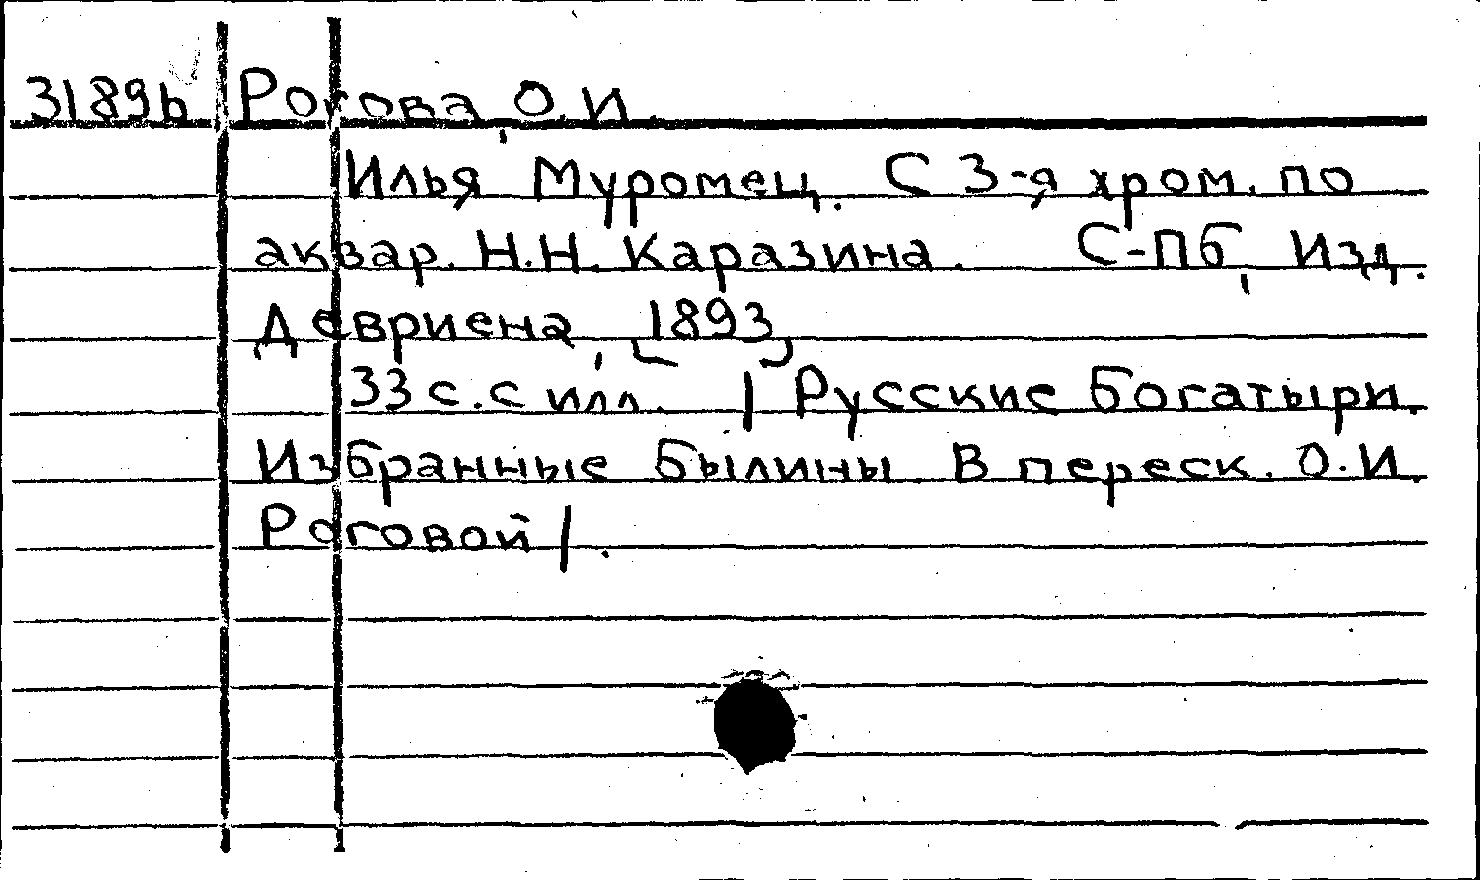 3189b Рогова, О.И.
Илья Муромец. С 3-я хром. по
аквар. Н.Н. Каразина. С-Пб, Изд.
Девриена, [1893]
33 с. с илл. / Русские Богатыри.
Избранные Былины. В переск. О.И.
Роговой /.